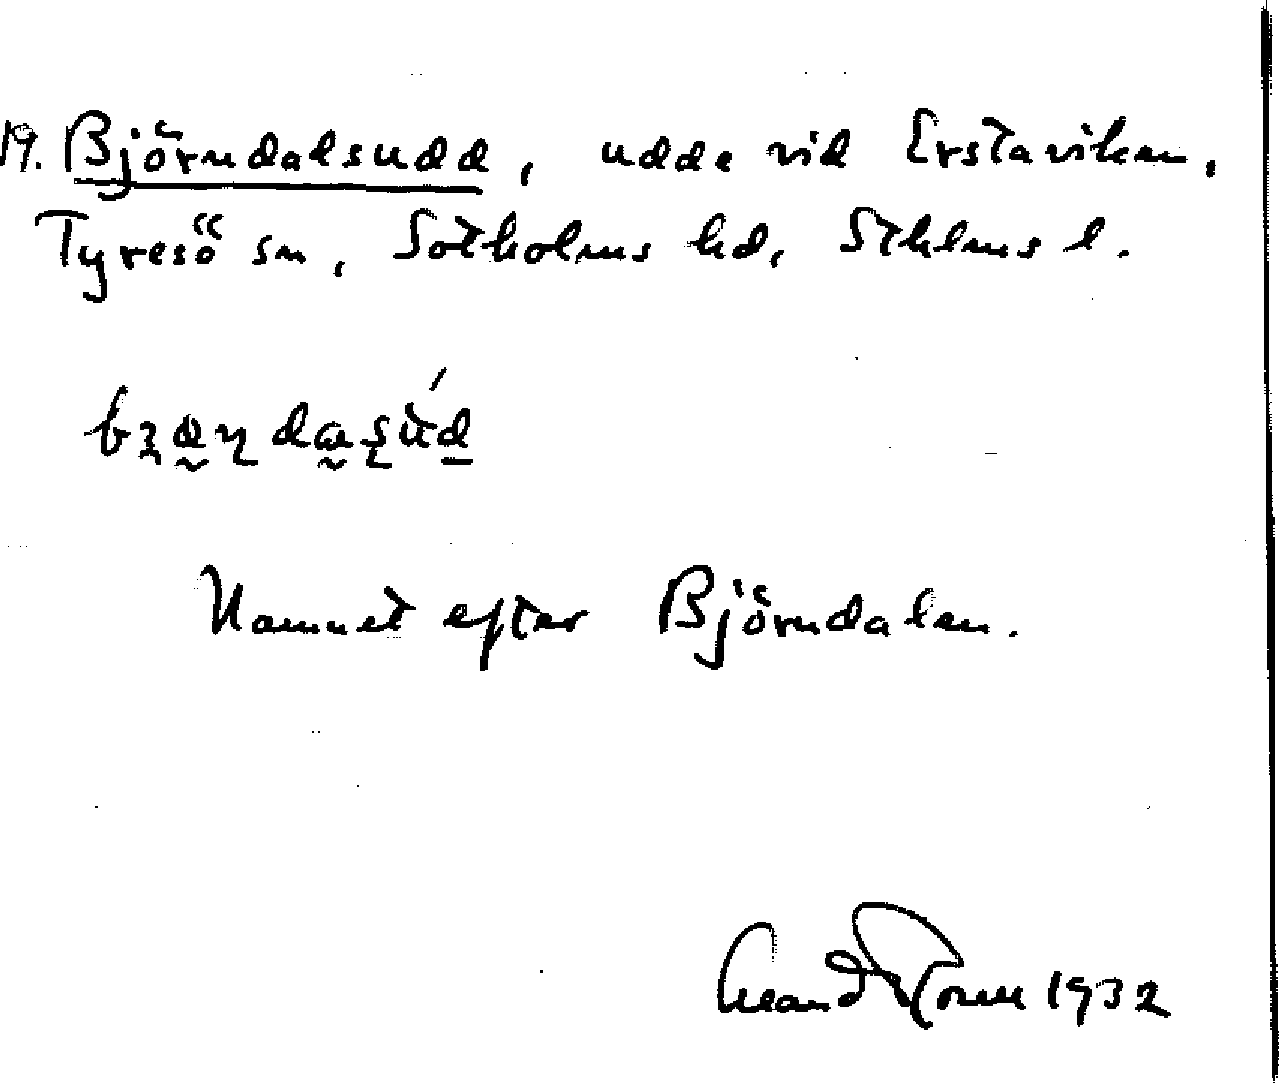 19. Björndalsudd, udde vid Erstaviken,
Tyresö sn, Sotholms hd, Sthlms l.
Namnet efter Björndalen.
1932